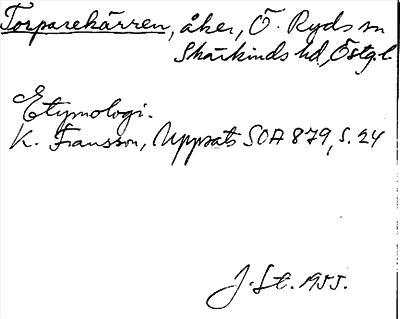 Torparekärren, åker, Ö. Ryds sn
Skärkinds hd, Östg.l
Etymologi.
K. Fransson, Uppsats SOA 879, s. 24
J. St. 1955.